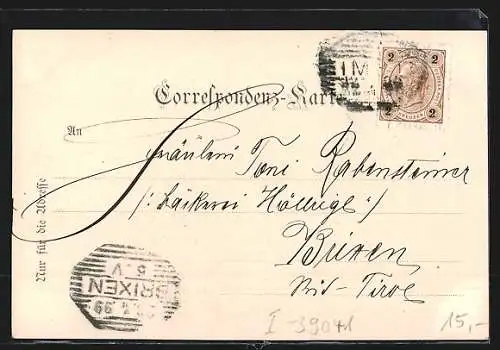 Correspondenz-Karte
An
Fräulein Toni Rabensteiner
(: Bäckerei Höllrigl :)
Brixen
Süd-Tirol
Nur für die Adresse
2 2
2 2
BRIXEN
I-39041
15,-